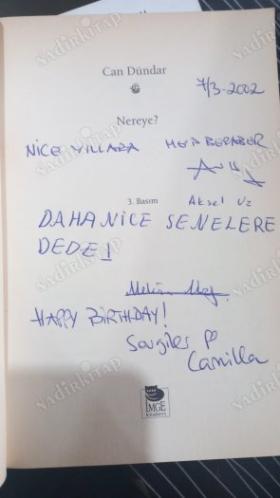 Can Dündar
7/3-2002
Nereye?
NİCE YILLARA HEP BERABER
3. Basım
Aksel Uz
DAHA NİCE SENELERE
DEDE!
HAPPY BIRTHDAY!
Sevgiler
Camilla
İMGE
kitabevi
sadırkitap